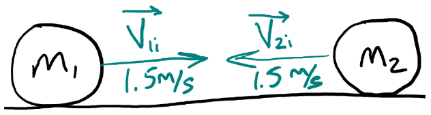 m₁
V₁ᵢ
1.5m/s
V₂ᵢ
1.5m/s
m₂